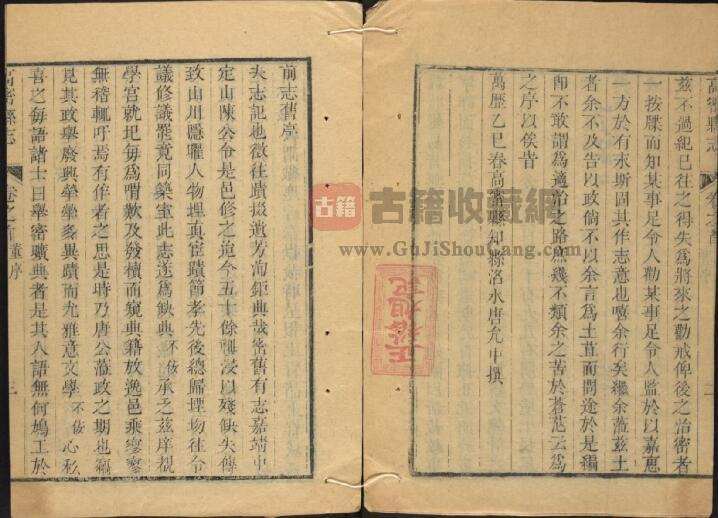 高密縣志
卷之首
二
茲不過紀已往之得失爲將來之勸戒俾後之治密者
一按牒而知某事足令人勸某事足令人監於以嘉惠
一方於有永斯固其作志意也嘻余行矣繼余蒞茲土
者余不及告以政倘不以余言爲土苴而問途於是編
即不敢謂爲適治之路庶幾不類余之苦於蒼茫云爲
之序以俟昔
萬歷乙巳春高密縣知縣洛水唐允中撰
前志舊序
夫志記也徵往蹟掇遺芳洵鉅典哉密舊有志嘉靖中
定山陳公令是邑修之迨今五十餘禩浸以殘缺失傳
致山川隱曜人物埋真宦蹟節孝先後總歸堙坳往令
議修議罷竟同築室此志遂爲缺典不佞承乏茲庠視
學宮就圯每爲喟歎及發櫝而窺典籍放逸邑乘寥寥
無稽輒吁焉有作者之思是時乃唐公蒞政之期也竊
見其政舉廢興犖犖多異蹟而尤雅意文學不佞心私
喜之每語諸士曰舉密曠典者是其人語無何鳩工於
高密縣志
卷之首 董序
三
古籍
古籍收藏网
www.GuJiShouCang.com